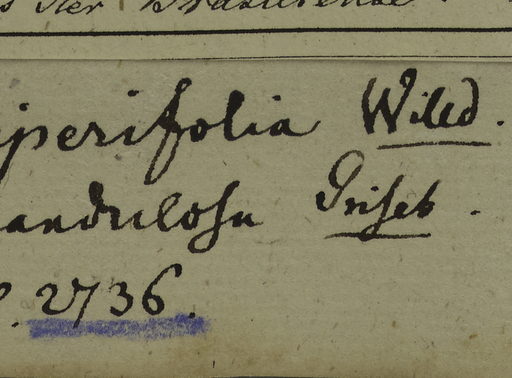 s Iter Brasiliense.
iperifolia Willd.
andulosa Griseb.
. 2736.